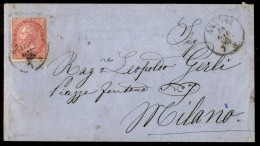 Sig
Rag. Leopoldo Gerli
Piazza fontana N. 7
Milano